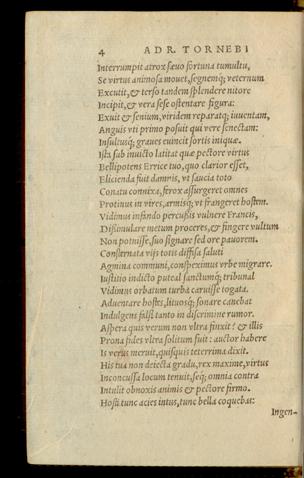 4 ADR. TORNEBI
Interrumpit atrox sæuo fortuna tumultu,
Se virtus animosa mouet, segnemq; veternum
Excutit, & terso tandem splendere nitore
Incipit, & vera sese ostentare figura:
Exuit & senium, viridem reparatq; iuuentam,
Anguis vti primo posuit qui vere senectam:
Insultusq; graues euincit sortis iniquæ.
Ista sub inuicto latitat quæ pectore virtus
Bellipotens Errice tuo, quo clarior esset,
Elicienda fuit damnis, vt saucia toto
Conatu connixa, ferox assurgeret omnes
Protinus in vires, armisq; vt frangeret hostem.
Vidimus infando percussis vulnere Francis,
Dissimulare metum proceres, & fingere vultum
Non potuisse, suo signare sed ore pauorem.
Consternata vijs totis diffisa saluti
Agmina communi, conspeximus vrbe migrare.
Iustitio indicto puteal sanctumq; tribunal
Vidimus orbatum turba caruisse togata.
Aduentare hostes, lituosq; sonare canebat
Indulgens falsi tanto in discrimine rumor.
Aspera quis verum non vltra finxit? & illis
Prona fides vltra solitum fuit: auctor habere
Is verus meruit, quisquis teterrima dixit.
His tua non deiecta gradu, rex maxime, virtus
Inconcussa locum tenuit, seq; omnia contra
Intulit obnoxis animis & pectore firmo.
Hosti tunc acies intus, tunc bella coquebas:
Ingen-